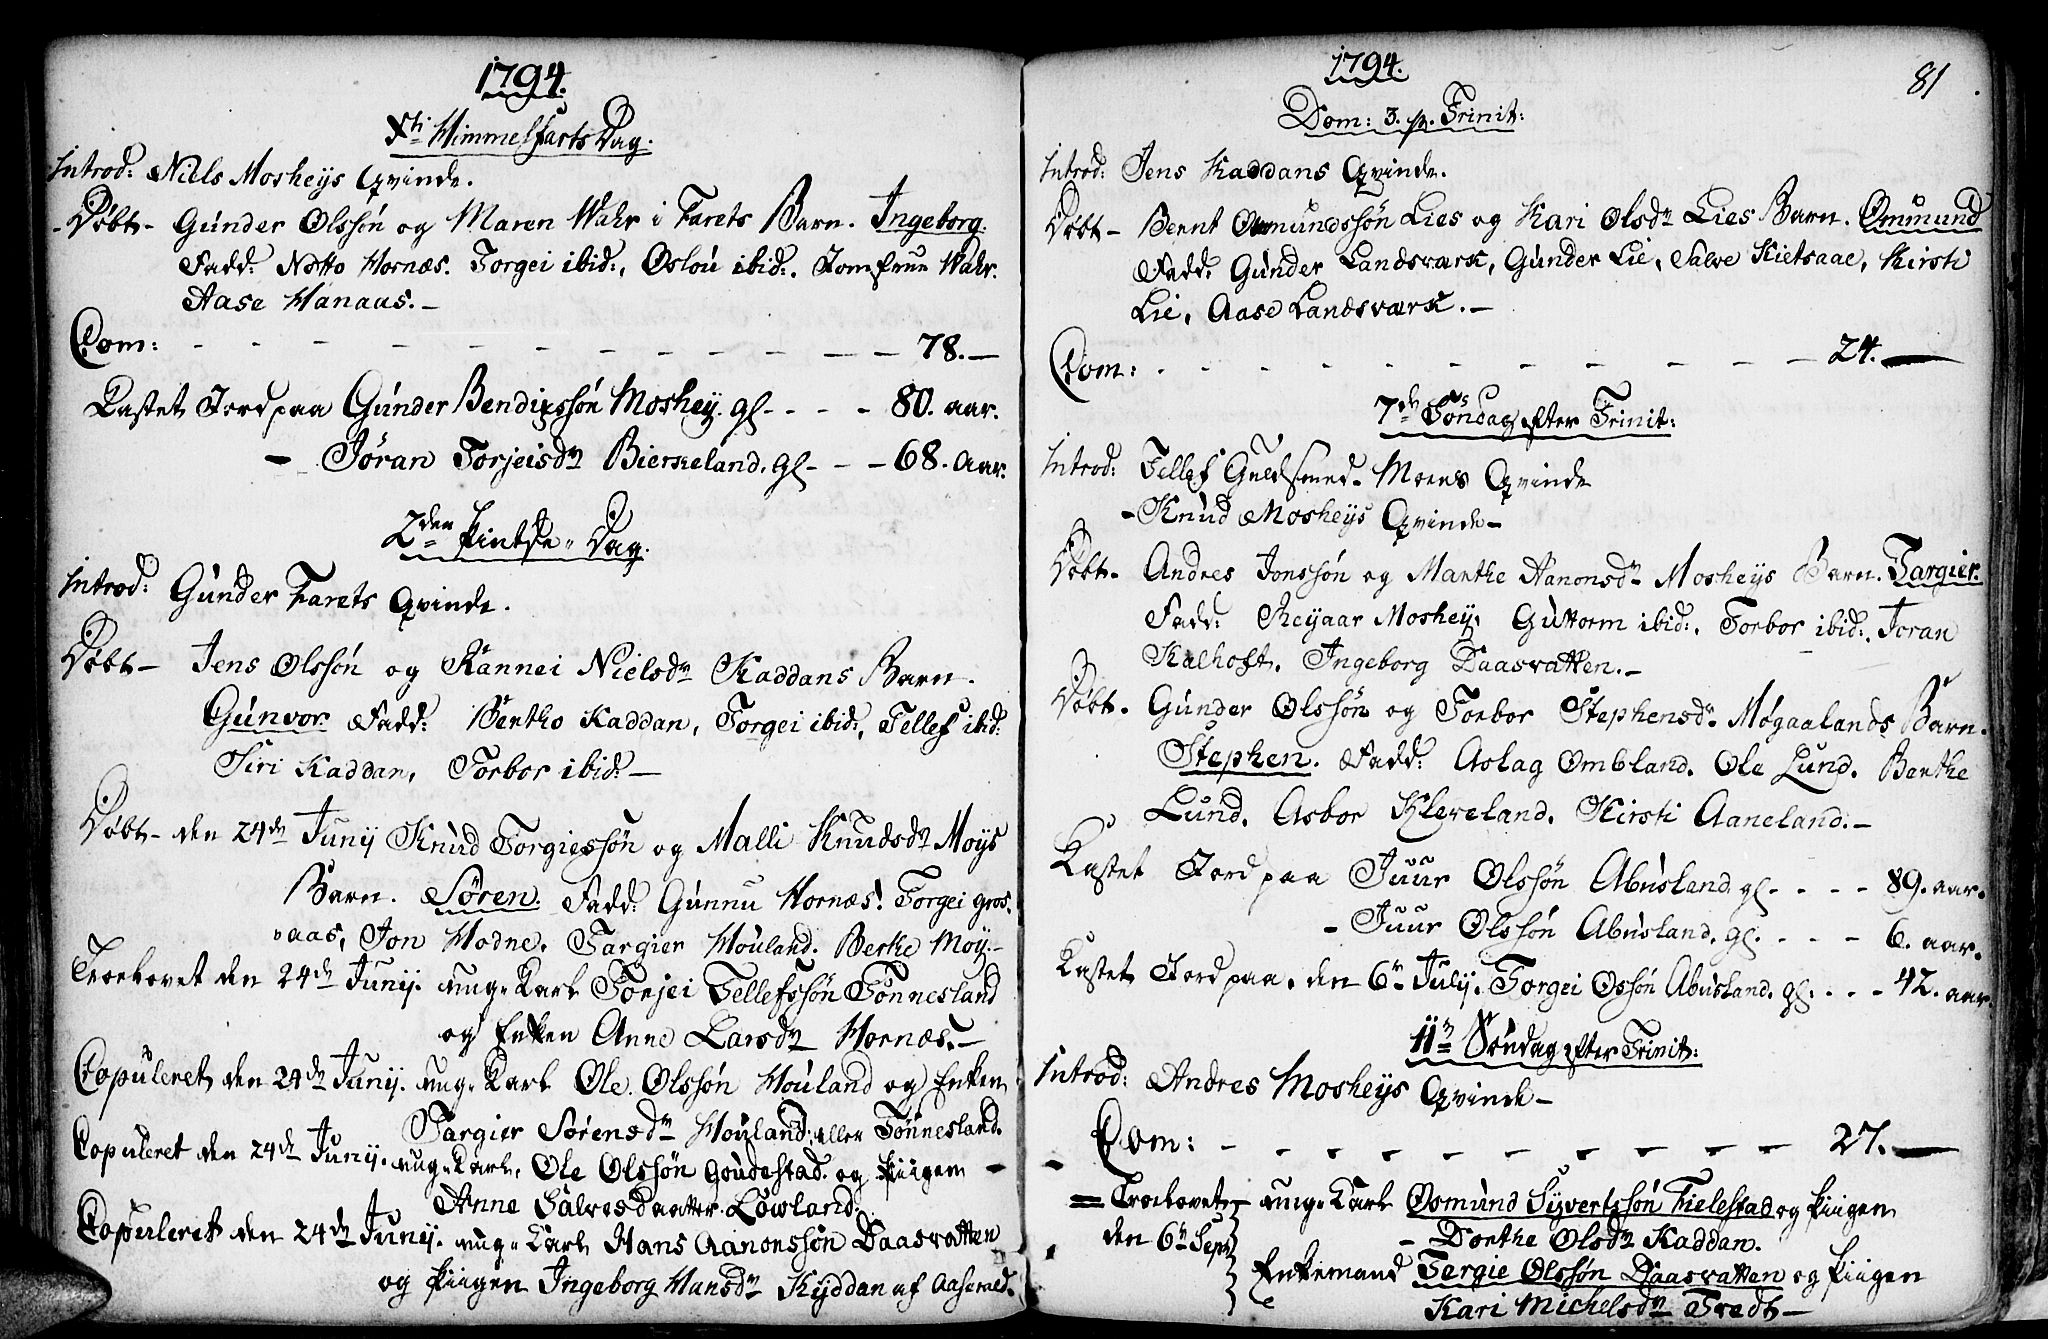 1794.
Xti Himmelfarts Dag.
Introd: Niels Mosheys Qvinde.
Døbt - Gunder Olssøn og Maren Wahr i Farets Barn. Ingeborg.
Fadd: Notto Hornæs. Torgei ibid:, Oslou ibid:. Jomfrue Wahr.
Aase Hanaas. -
Com: - - - - - - - - - - - - 78. -
Kastet Jord paa Gunder Bendixssøn Moshey. gl - - - - 80. aar.
- Jøran Torjeisdr Bierkeland. gl - - - 68. aar.
2den Pintse-Dag.
Introd: Gunder Farets Qvinde.
Døbt - Jens Olssøn og Rannei Nielsdr Kaddans Barn.
Gunvor. Fadd: Bertho Kaddan, Torgei ibid:, Tellef ibid:
Siri Kaddan, Torbor ibid: -
Døbt - den 24de Junij Knud Torgiessøn og Malli Knudsdr Moys
Barn. Søren. Fadd: Gunnu Hornæs! Torgei gros-
aas, Jon Hodne. Targier Houland. Berthe Moy. -
Troelovet den 24de Junij. ung-Karl Torjei Tellefssøn Tønnesland
og Enken Anne Larsdr Hornæs. -
Copuleret den 24de Junij. ung-Karl Ole Olssøn Houland og Enken
Targier Sørensdr Houland. eller Tønnesland.
Copuleret den 24de Junij. ung-Karl. Ole Olssøn Goudestad. og Piigen -
Anne Salvesdaatter Lowland.
Copuleret den 24de Junij. ung-Karl Hans Aanonssøn Daasvatten
og Piigen Ingeborg Hansdr Kyddan af Aaserald.
1794. 81.
Dom: 3. p. Trinit:
Introd: Jens Kaddans Qvinde.
Døbt - Bernt Omundssøn Lies og Kari Olsdr Lies Barn. Omund
Fadd: Gunder Landsværk, Gunder Lie, Salve Kietsaae, Kirsti
Lie, Aase Landsværk. -
Com: - - - - - - - - - - - 24. -
7de Søndag efter Trinit:
Introd: Tellef Guldsmed. Moens Qvinde
- Knud Mosheys Qvinde -
Døbt - Andres Jonssøn og Marthe Aanonsdr Mosheys Barn. Targier.
Fadd: Reyaar Moshey. Guttorm ibid:. Torbor ibid:. Joran
Kalhoft. Ingeborg Daasvatten. -
Døbt - Gunder Olssøn og Torbor Stephensdr Møgaalands Barn.
Stephen. Fadd: Aslag Ombland. Ole Lund. Berthe
Lund. Asbor Kleveland. Kirsti Aaneland. -
Kastet Jord paa Juur Olssøn Abusland. gl - - - - 89. aar.
- Juur Olssøn Abusland. gl. - - - - 6. aar.
Kastet Jord paa. den 6te July. Torgei Ossøn Abusland. gl. - - - 42. aar.
11te Søndag efter Trinit:
Introd: Andres Mosheys Qvinde -
Com: - - - - - - - - - - 27. -
= Troelovet - ung-Karl Osmund Syvertssøn Fielestad og Piigen
den 6te Sept - Dorthe Olsdr Kaddan.
Enkemand Tergie Olssøn Daasvatten og Piigen
Kari Michelsdr Tredt -